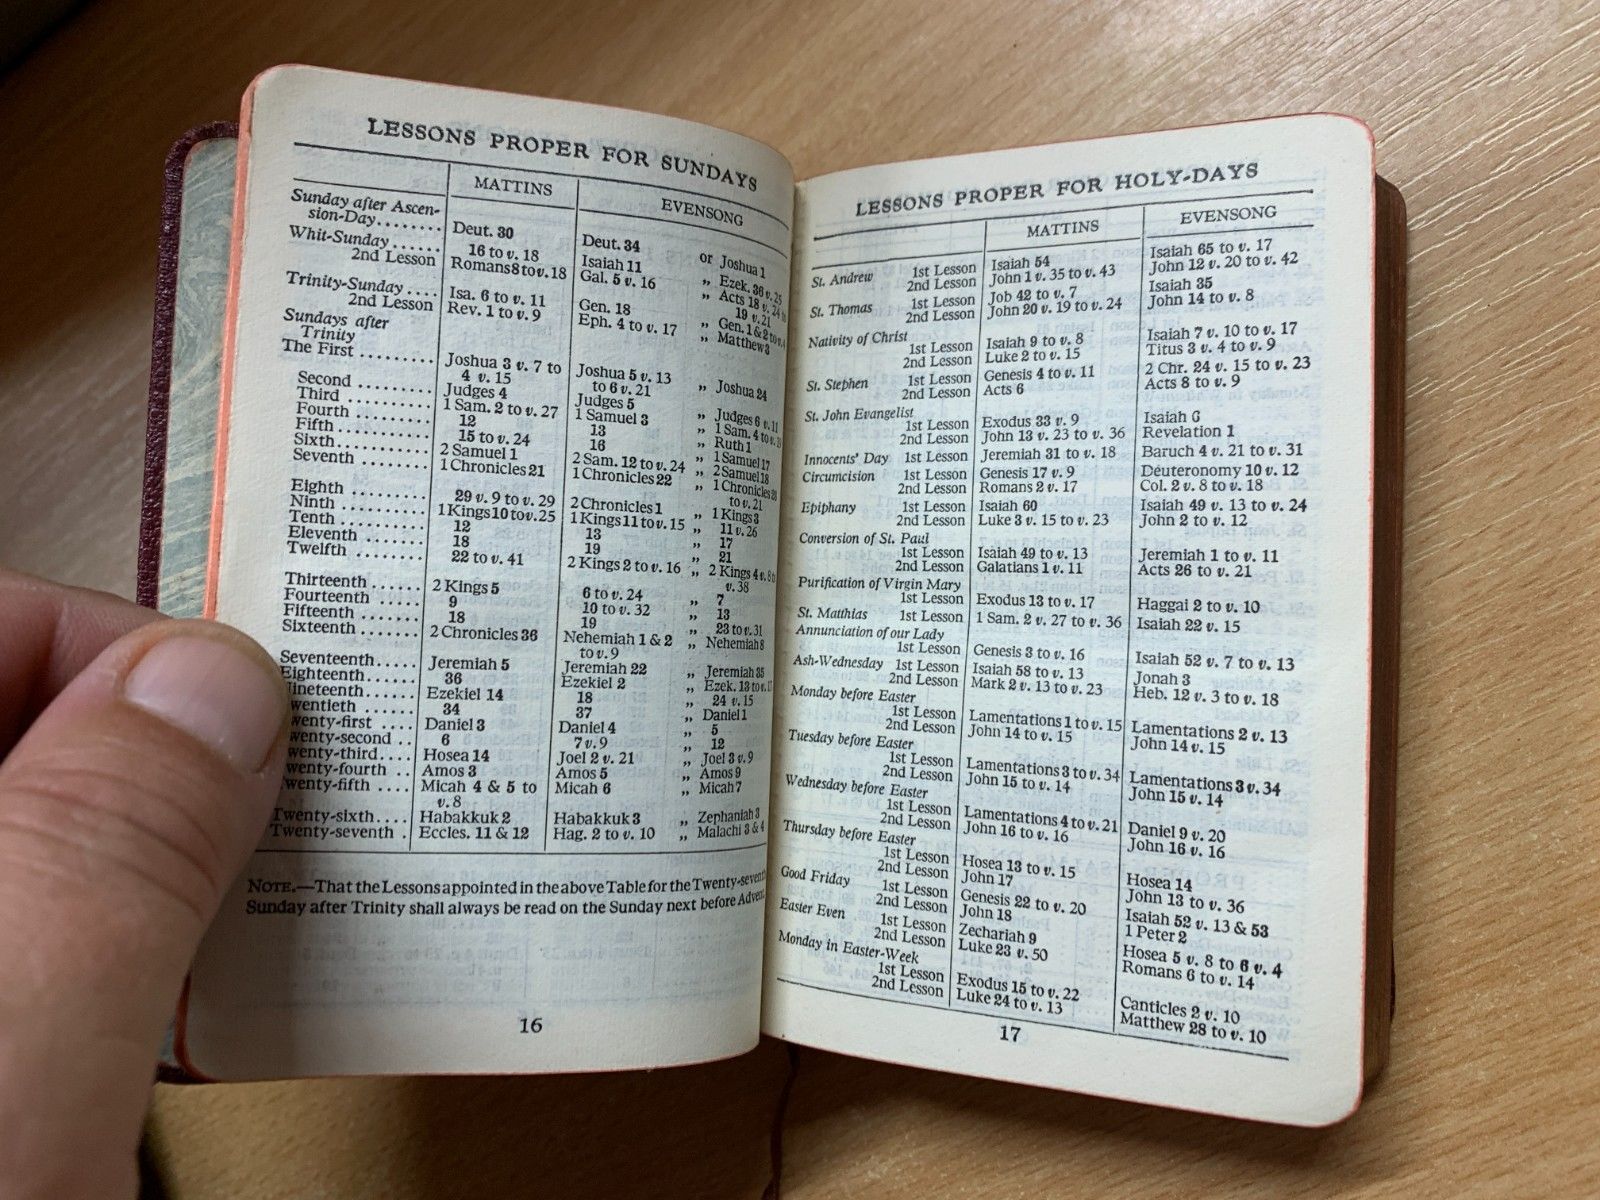 LESSONS PROPER FOR SUNDAYS
MATTINS EVENSONG
Sunday after Ascen-
sion-Day........ Deut. 30 Deut. 34 or Joshua 1
Whit-Sunday ...... 16 to v. 18 Isaiah 11 „ Ezek. 36 v. 25
2nd Lesson Romans 8 to v. 18 Gal. 5 v. 16 „ Acts 18 v. 24 to
19 v. 21
Trinity-Sunday .... Isa. 6 to v. 11 Gen. 18 „ Gen. 1 & 2 to v. 4
2nd Lesson Rev. 1 to v. 9 Eph. 4 to v. 17 „ Matthew 3
Sundays after
Trinity
The First .......... Joshua 3 v. 7 to Joshua 5 v. 13 „ Joshua 24
4 v. 15 to 6 v. 21
Second ......... Judges 4 Judges 5 „ Judges 6 v. 11
Third .......... 1 Sam. 2 to v. 27 1 Samuel 3 „ 1 Sam. 4 to v.
Fourth .......... 12 13 „ Ruth 1
Fifth .......... 15 to v. 24 16 „ 1 Samuel 17
Sixth .......... 2 Samuel 1 2 Sam. 12 to v. 24 „ 2 Samuel 18
Seventh ......... 1 Chronicles 21 1 Chronicles 22 „ 1 Chronicles
to v. 21
Eighth ......... 29 v. 9 to v. 29 2 Chronicles 1 „ 1 Kings 3
Ninth .......... 1 Kings 10 to v. 25 1 Kings 11 to v. 15 „ 11 v. 26
Tenth .......... 12 13 „ 17
Eleventh ....... 18 19 „ 21
Twelfth ........ 22 to v. 41 2 Kings 2 to v. 16 „ 2 Kings 4 v. 8 to
v. 38
Thirteenth ...... 2 Kings 5 6 to v. 24 „ 7
Fourteenth ...... 9 10 to v. 32 „ 13
Fifteenth ....... 18 19 „ 23 to v. 31
Sixteenth ....... 2 Chronicles 36 Nehemiah 1 & 2 „ Nehemiah 8
to v. 9
Seventeenth..... Jeremiah 5 Jeremiah 22 „ Jeremiah 35
Eighteenth ..... 36 Ezekiel 2 „ Ezek. 13 to v. 17
Nineteenth ..... Ezekiel 14 18 „ 24 v. 15
wentieth ....... 34 37 „ Daniel 1
wenty-first .... Daniel 3 Daniel 4 „ 5
wenty-second .. 6 7 v. 9 „ 12
wenty-third.... Hosea 14 Joel 2 v. 21 „ Joel 3 v. 9
wenty-fourth .. Amos 3 Amos 5 „ Amos 9
wenty-fifth .... Micah 4 & 5 to Micah 6 „ Micah 7
v. 8
Twenty-sixth.... Habakkuk 2 Habakkuk 3 „ Zephaniah 3
Twenty-seventh . Eccles. 11 & 12 Hag. 2 to v. 10 „ Malachi 3 & 4
NOTE.—That the Lessons appointed in the above Table for the Twenty-seventh
Sunday after Trinity shall always be read on the Sunday next before Advent.
16
LESSONS PROPER FOR HOLY-DAYS
MATTINS EVENSONG
St. Andrew 1st Lesson Isaiah 54 Isaiah 65 to v. 17
2nd Lesson John 1 v. 35 to v. 43 John 12 v. 20 to v. 42
St. Thomas 1st Lesson Job 42 to v. 7 Isaiah 35
2nd Lesson John 20 v. 19 to v. 24 John 14 to v. 8
Nativity of Christ
1st Lesson Isaiah 9 to v. 8 Isaiah 7 v. 10 to v. 17
2nd Lesson Luke 2 to v. 15 Titus 3 v. 4 to v. 9
St. Stephen 1st Lesson Genesis 4 to v. 11 2 Chr. 24 v. 15 to v. 23
2nd Lesson Acts 6 Acts 8 to v. 9
St. John Evangelist
1st Lesson Exodus 33 v. 9 Isaiah 6
2nd Lesson John 13 v. 23 to v. 36 Revelation 1
Innocents' Day 1st Lesson Jeremiah 31 to v. 18 Baruch 4 v. 21 to v. 31
Circumcision 1st Lesson Genesis 17 v. 9 Deuteronomy 10 v. 12
2nd Lesson Romans 2 v. 17 Col. 2 v. 8 to v. 18
Epiphany 1st Lesson Isaiah 60 Isaiah 49 v. 13 to v. 24
2nd Lesson Luke 3 v. 15 to v. 23 John 2 to v. 12
Conversion of St. Paul
1st Lesson Isaiah 49 to v. 13 Jeremiah 1 to v. 11
2nd Lesson Galatians 1 v. 11 Acts 26 to v. 21
Purification of Virgin Mary
1st Lesson Exodus 13 to v. 17 Haggai 2 to v. 10
St. Matthias 1st Lesson 1 Sam. 2 v. 27 to v. 36 Isaiah 22 v. 15
Annunciation of our Lady
1st Lesson Genesis 3 to v. 16 Isaiah 52 v. 7 to v. 13
Ash-Wednesday 1st Lesson Isaiah 58 to v. 13 Jonah 3
2nd Lesson Mark 2 v. 13 to v. 23 Heb. 12 v. 3 to v. 18
Monday before Easter
1st Lesson Lamentations 1 to v. 15 Lamentations 2 v. 13
2nd Lesson John 14 to v. 15 John 14 v. 15
Tuesday before Easter
1st Lesson Lamentations 3 to v. 34 Lamentations 3 v. 34
2nd Lesson John 15 to v. 14 John 15 v. 14
Wednesday before Easter
1st Lesson Lamentations 4 to v. 21 Daniel 9 v. 20
2nd Lesson John 16 to v. 16 John 16 v. 16
Thursday before Easter
1st Lesson Hosea 13 to v. 15 Hosea 14
2nd Lesson John 17 John 13 to v. 36
Good Friday 1st Lesson Genesis 22 to v. 20 Isaiah 52 v. 13 & 53
2nd Lesson John 18 1 Peter 2
Easter Even 1st Lesson Zechariah 9 Hosea 5 v. 8 to 6 v. 4
2nd Lesson Luke 23 v. 50 Romans 6 to v. 14
Monday in Easter-Week
1st Lesson Exodus 15 to v. 22 Canticles 2 v. 10
2nd Lesson Luke 24 to v. 13 Matthew 28 to v. 10
17